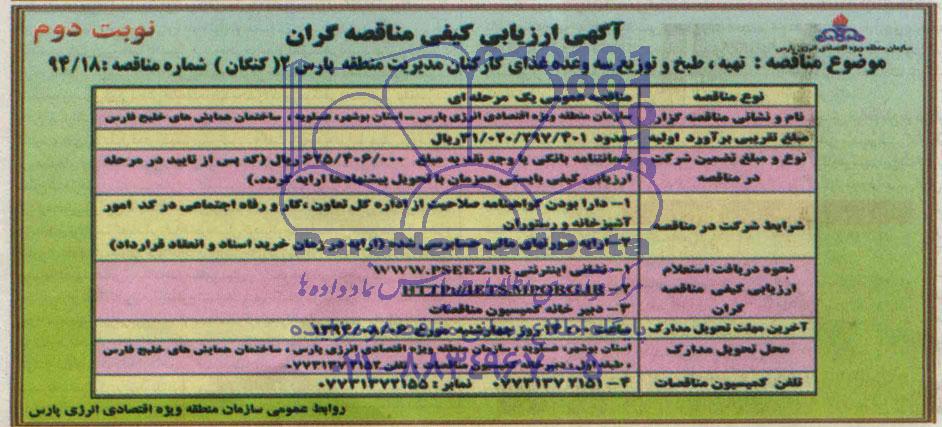 نوبت دوم
آگهی ارزیابی کیفی مناقصه گران
سازمان منطقه ویژه اقتصادی انرژی پارس
موضوع مناقصه : تهیه ، طبخ و توزیع سه وعده غذای کارکنان مدیریت منطقه پارس ۲( کنگان ) شماره مناقصه :۹۴/۱۸
نوع مناقصه مناقصه عمومی یک مرحله ای
نام و نشانی مناقصه گزار سازمان منطقه ویژه اقتصادی انرژی پارس – استان بوشهر، عسلویه ، ساختمان همایش های خلیج فارس
مبلغ تقریبی برآورد اولیه حدود ۳۱/۰۲۰/۲۹۷/۴۰۱ریال
نوع و مبلغ تضمین شرکت در مناقصه ضمانتنامه بانکی یا وجه نقد به مبلغ ۶۲۵/۴۰۶/۰۰۰ ریال (که پس از تایید در مرحله
ارزیابی کیفی بایستی همزمان با تحویل پیشنهادها ارایه گردد.)
شرایط شرکت در مناقصه ۱– دارا بودن گواهینامه صلاحیت از اداره کل تعاون ،کار و رفاه اجتماعی در کد امور
آشپزخانه و رستوران
۲– ارایه صورتهای مالی حسابرسی شده (ارایه در زمان خرید اسناد و انعقاد قرارداد)
نحوه دریافت استعلام ارزیابی کیفی مناقصه گران ۱– نشانی اینترنتی WWW.PSEEZ.IR
۲– HTTP://IETS.MPORG.IR
۳– دبیر خانه کمیسیون مناقصات
آخرین مهلت تحویل مدارک
محل تحویل مدارک استان بوشهر، عسلویه ، سازمان منطقه ویژه اقتصادی انرژی پارس ، ساختمان همایش های خلیج فارس
، طبقه اول ، دبیر خانه کمیسیون مناقصات تلفن ۰۷۷۳۱۳۷۲۱۵۲
تلفن کمیسیون مناقصات ۴–۰۷۷۳۱۳۷۲۱۵۱ نمابر : ۰۷۷۳۱۳۷۲۱۵۵
روابط عمومی سازمان منطقه ویژه اقتصادی انرژی پارس
ParsNamadData
۰۲۱-۸۸۳۴۹۶۷۰-۵